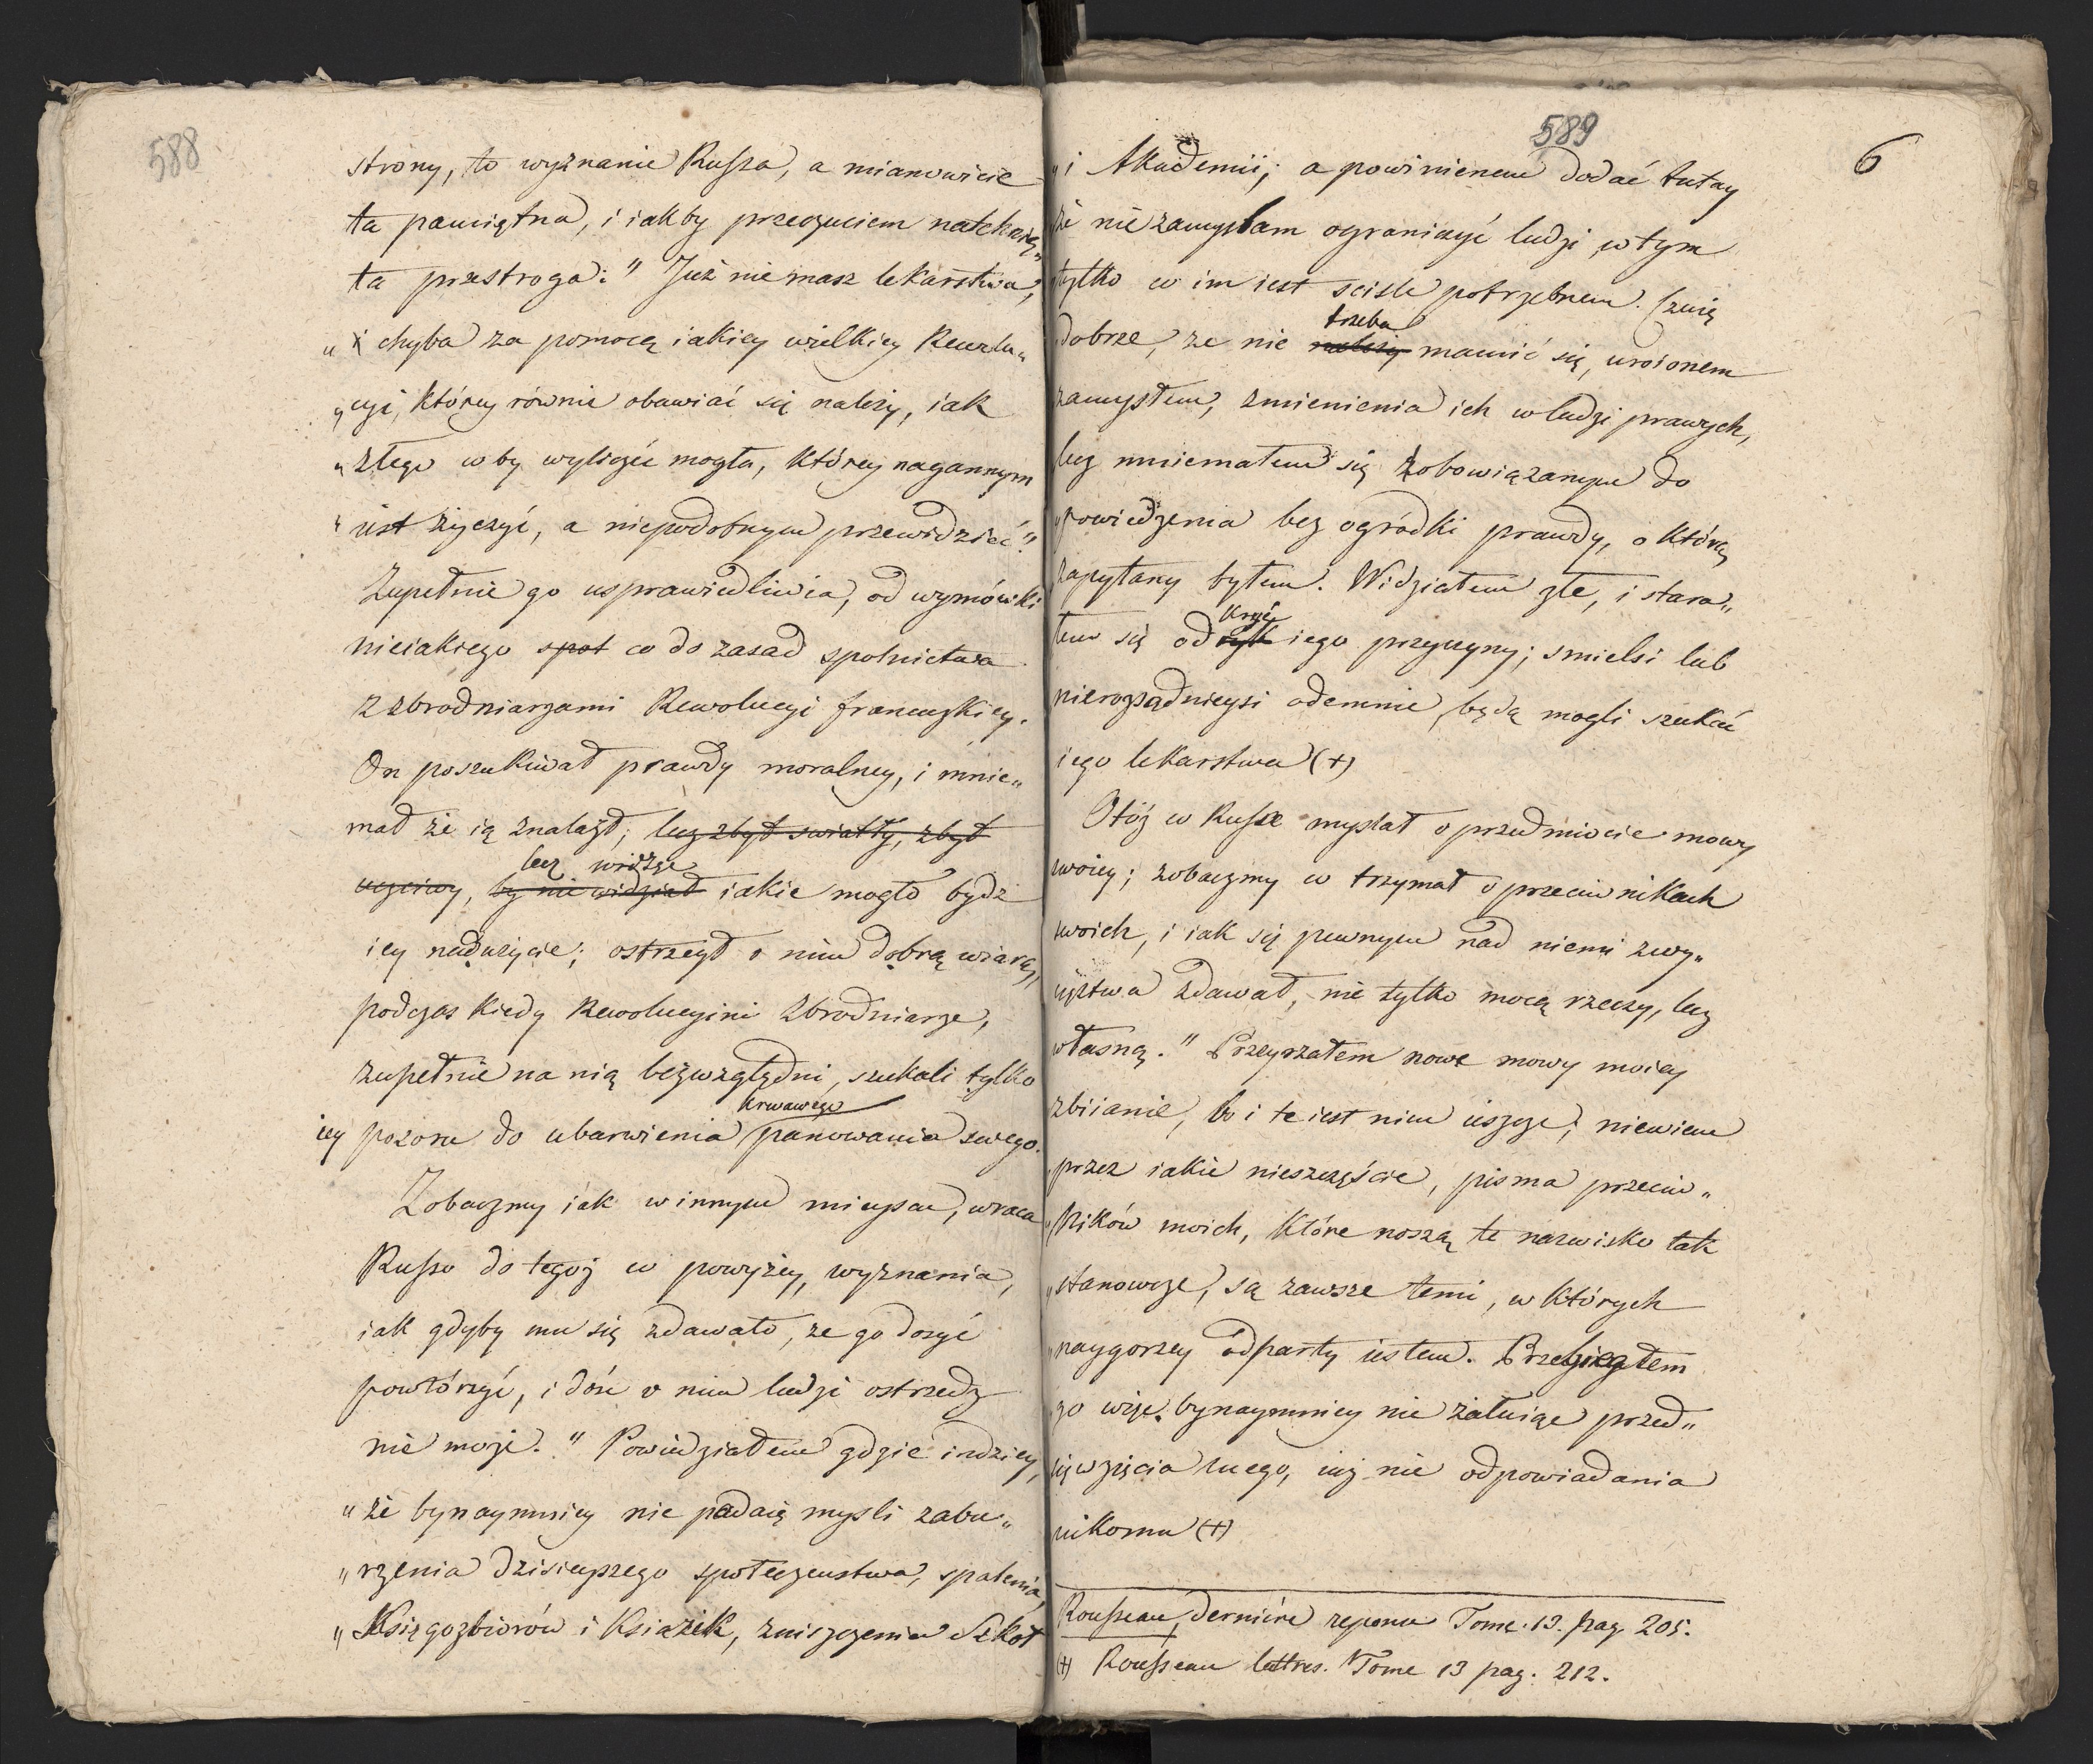 588
strony, to wyznanie Russa, a mianowicie
ta pamiętna, i iakby przeczuciem natchnię„
ta przestroga: " Już nie masz lekarstwa,
" chyba za pomocą iakiey wielkiey Rewolu„
"cyi, którey równie obawiać się należy, iak
"złego co by wyliczyć mogła, którey nagannym
"iest życzyć, a niepodobnym przewidzieć."
Zupełnie go usprawiedliwia, od wymówki
nieiakiego społ co do zasad spolnictwa
z zbrodniarzami Rewolucyi francuzkiey.
On poszukiwał prawdy moralney, i mnie„
mał że ią znalazł; lecz zbyt swiatły, zbyt
lecz widząc
uczciwy, by nie widział iakie mogło bydź
iey nadużycie; ostrzegł o nim dobrą wiarę,
podczas kiedy Rewolucyini zbrodniarze,
zupełnie na nią bezwzględni, szukali tylko
krwawego
iey pozoru do ubarwienia panowania swego.
Zobaczmy iak w innym mieyscu, wraca
Russo do tegoż co powyżey, wyznania,
iak gdyby mu się zdawało, że go dosyć
powtórzyć, i dość o nim ludzi ostrzedz
nie może. " Powiedziałem gdzie indziey,
"że bynaymniey nie podaię mysli zabu„
"rzenia dzisieyszego społeczeństwa, spalenia,
"Księgozbiorów i Ksiazek, zniszczenia Szkoł
589
6
"i Akademii; a powinienem dodać tutay
że nie zamyslam ograniczyć ludzi w tym
tylko co im iest scisle potrzebnem. Czuię
trzeba
dobrze, że nie należy mamić się, uroionem
zamysłem, zmienienia ich w ludzi prawych,
lecz mniemałem się zobowiązanym do
"powiedzenia bez ogródki prawdy, o którą
zapytany byłem. Widziałem złe, i stara„
kryć
łem się od iego przyczyny; smielsi lub
nierozsądnieysi odemnie, będą mogli szukać
iego lekarstwa (+)
Otóż co Russo myslał o przedmiocie mowy
swoiey; zobaczmy co trzymał o przeciwnikach
swoich, i iak się pewnym nad niemi zwy„
cięztwa zdawał, nie tylko mocą rzeczy, lecz
własną. " Przeyrzałem nowe mowy moiey
zbiianie, bo i te iest nim ieszcze; niewiem
przez iakie nieszczęście, pisma przeciw„
"ników moich, które noszą te nazwisko tak
"stanowcze, są zawsze temi, w których
"naygorzey odparty iestem. Przebiegłem
go więc bynaymniey nie żałuiąc przed„
sięwzięcia mego, iuż nie odpowiadania
nikomu (+)
Rousseau, derniére reponse Tome. 13. pag. 205.
(+) Rousseau lettres. Tome 13 pag. 212.